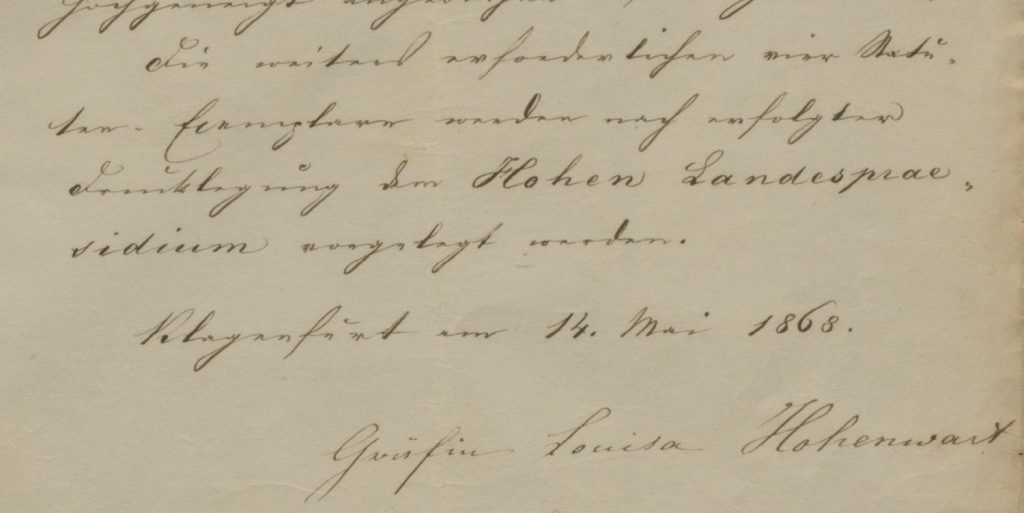 hochgeneigt
Die weiters erforderlichen vier Statu-
ten-Exemplare werden nach erfolgter
Drucklegung dem Hohen Landesprae-
sidium vorgelegt werden.
Klagenfurt am 14. Mai 1868.
Gräfin Louisa Hohenwart